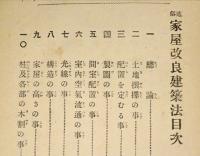 通俗
家屋改良建築法目次
一 總論
二 土地撰擇の事
三 配置を定むる事
四 製圖の事
五 間室配置の事
六 室内空氣流通の事
七 光線の事
八 構造の事
九 家屋の高さの事
一〇 柱及各部の木割の事